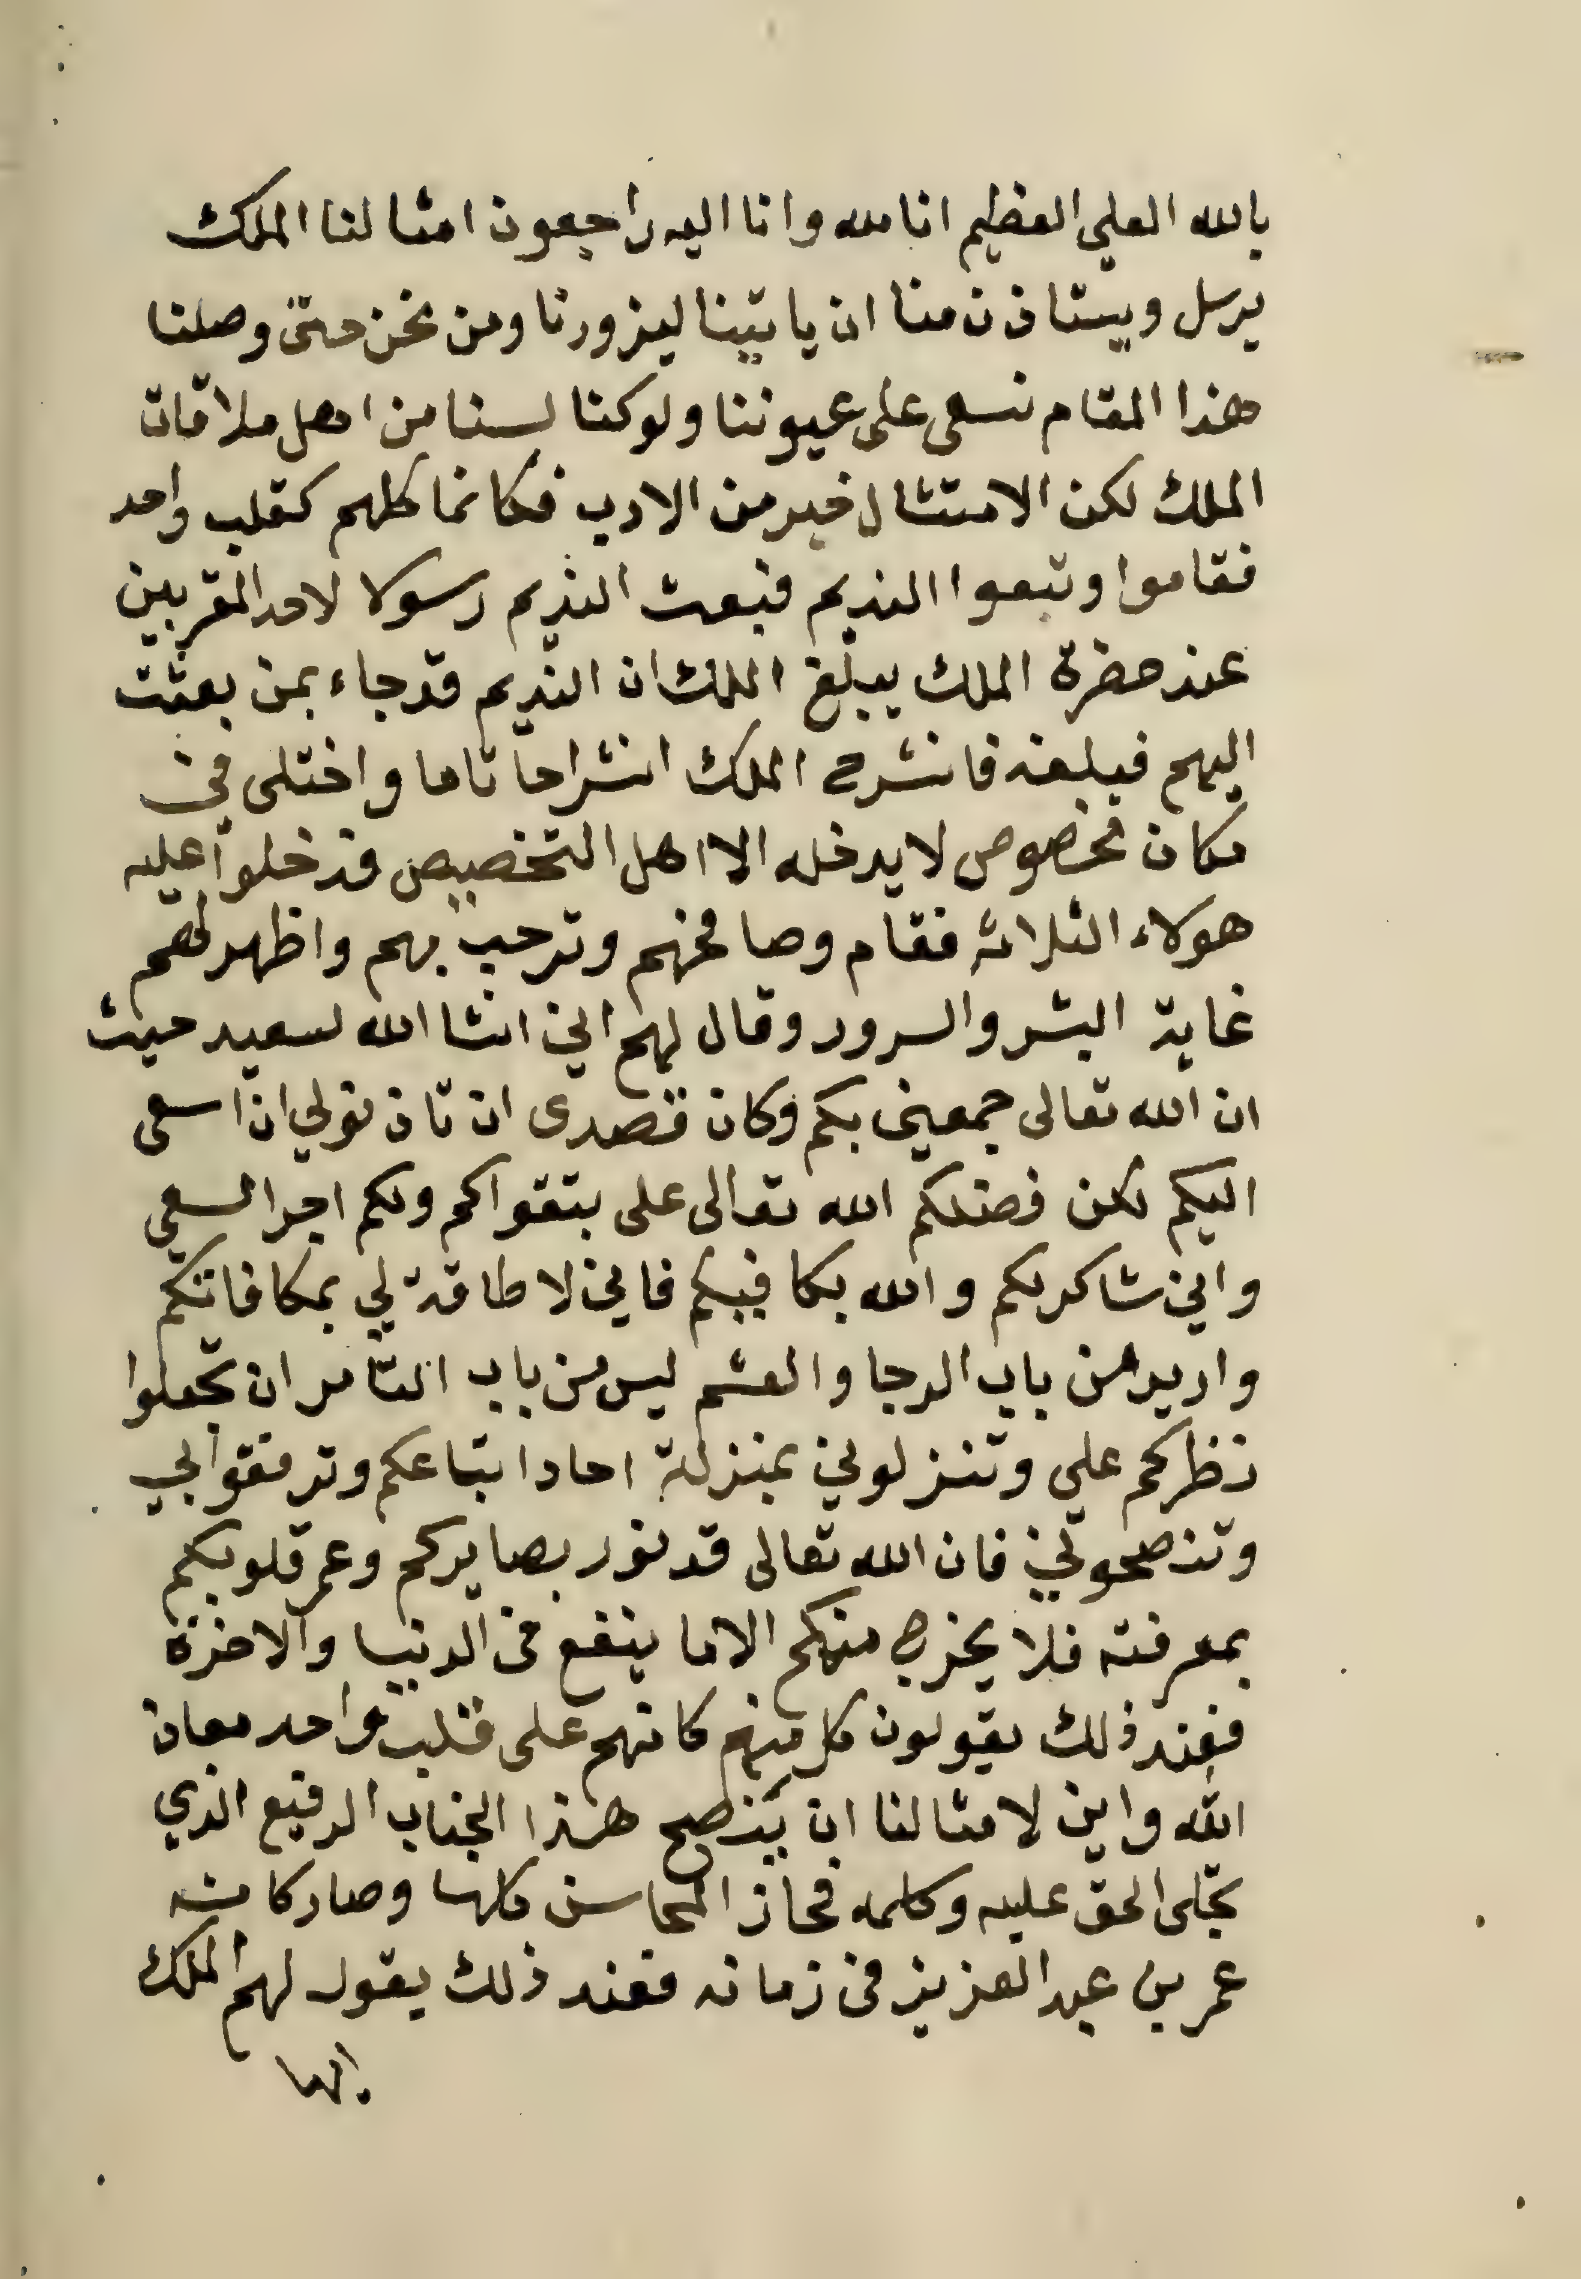 بالله العلي العظيم انا لله وانا اليه راجعون امثالنا الملك
يرسل ويستاذن منا ان ياتينا ليزورنا ومن نحن حتى وصلنا
هذا المقام نسعى على عيوننا ولو كنا لسنا من اهل ملاقات
الملك لكن الامتثال خير من الادب فكانما كلهم كقلب واحد
فقاموا وتبعوا النديم فبعث النديم رسولا لاحد المقربين
عند حضرة الملك يبلغ الملك ان النديم قد جاء بمن بعثت
اليهم فبلغه فانشرح الملك انشراحا تاما واختلى في
مكان مخصوص لا يدخله الا اهل التخصيص فدخلوا عليه
هولاء الثلاثة فقام وصافحهم وترحب بهم واظهر لهم
غاية البشر والسرور وقال لهم اني انشا الله لسعيد حيث
ان الله تعالى جمعني بكم وكان قصدى ان تاذنولي ان اسعى
اليكم لكن فضلكم الله تعالى على بتقواكم ولكم اجر السعي
واني شاكر لكم والله يكافيكم فاني لا طاقة لي بمكافاتكم
واريد من باب الرجا والعشم ليس من باب التامر ان تجعلوا
نظركم على وتنزلوني بمنزلة احاد اتباعكم وترفقوا بي
وتنصحوني فان الله تعالى قد نور بصايركم وعمر قلوبكم
بمعرفته فلا يخرج منكم الا ما ينفع في الدنيا والاخرة
فعند ذلك يقولون كل منهم كانهم على قلب واحد معاذ
الله واين لامثالنا ان ينصح هذا الجناب الرفيع الذي
تجلى الحق عليه وكلمه فحاز المحاسن كلها وصار كانه
عمر بن عبد العزيز في زمانه فعند ذلك يقول لهم الملك
ايها